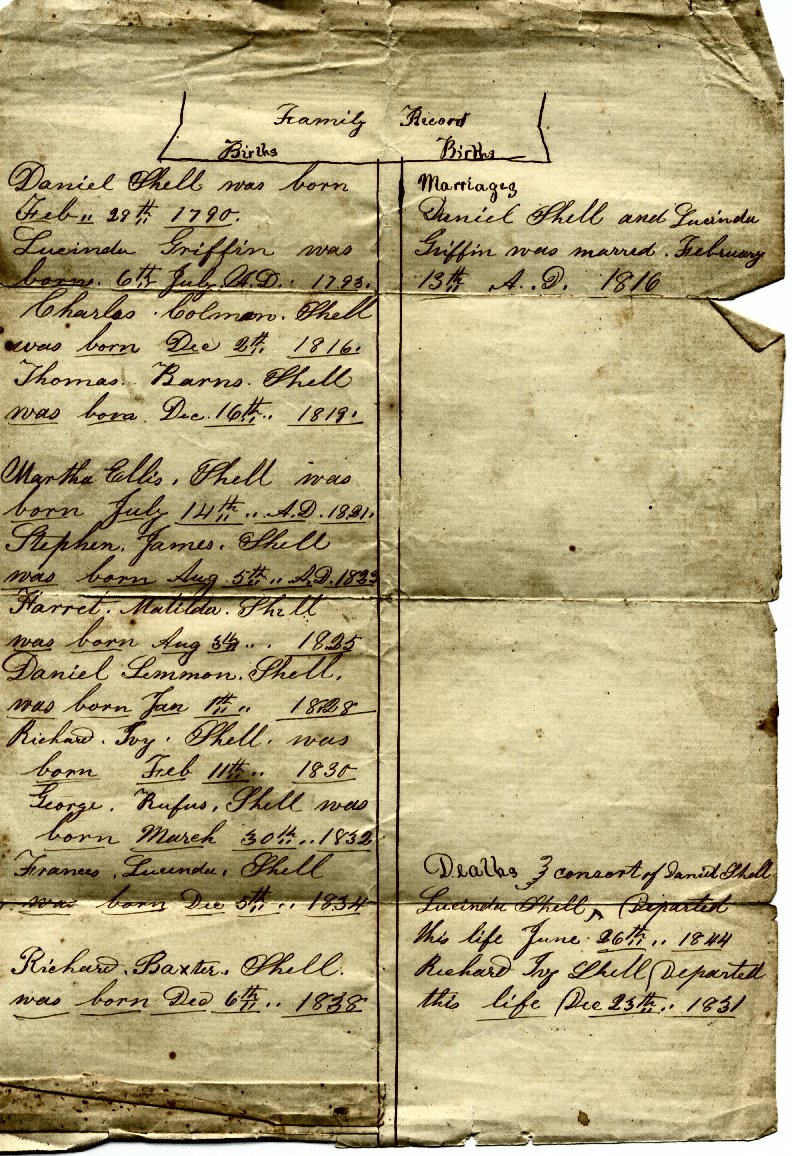 Family Record
Births Births
Daniel Shell was born
Feb 29th 1790.
Lucinda Griffin was
born 6th July A.D. 1793.
Charles Colman Shell
was born Dec 2th 1816.
Thomas Barns Shell
was born Dec 16th 1819.
Martha Ellis Shell was
born July 14th A.D. 1821.
Stephen James Shell
was born Aug 5th A.D. 1823
Harret Matilda Shell
was born Aug 3th 1825
Daniel Lemmon Shell.
was born Jan 1th 1828
Richard Ivy Shell was
born Feb 11th 1830
George Rufus Shell was
born March 30th 1832
Frances Lucinda Shell
was born Dec 5th 1834
Richard Baxter Shell.
was born Dec 6th 1838
Marriages
Daniel Shell and Lucinda
Griffin was marred February
13th A.D. 1816
Deaths consort of Daniel Shell
Lucinda Shell ^ Departed
this life June 26th 1844
Richard Ivy Shell Departed
this life Dec 23th 1831